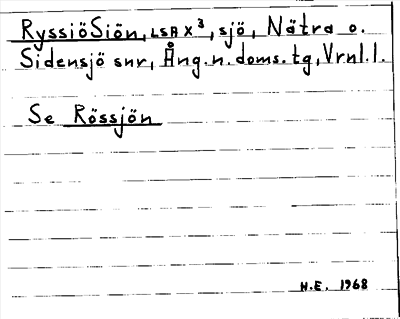 RyssiöSiön, LSA X³, sjö, Nätra o.
Sidensjö snr, Ång. n. doms. tg, Vrnl. l.
Se Rössjön
H.E. 1968